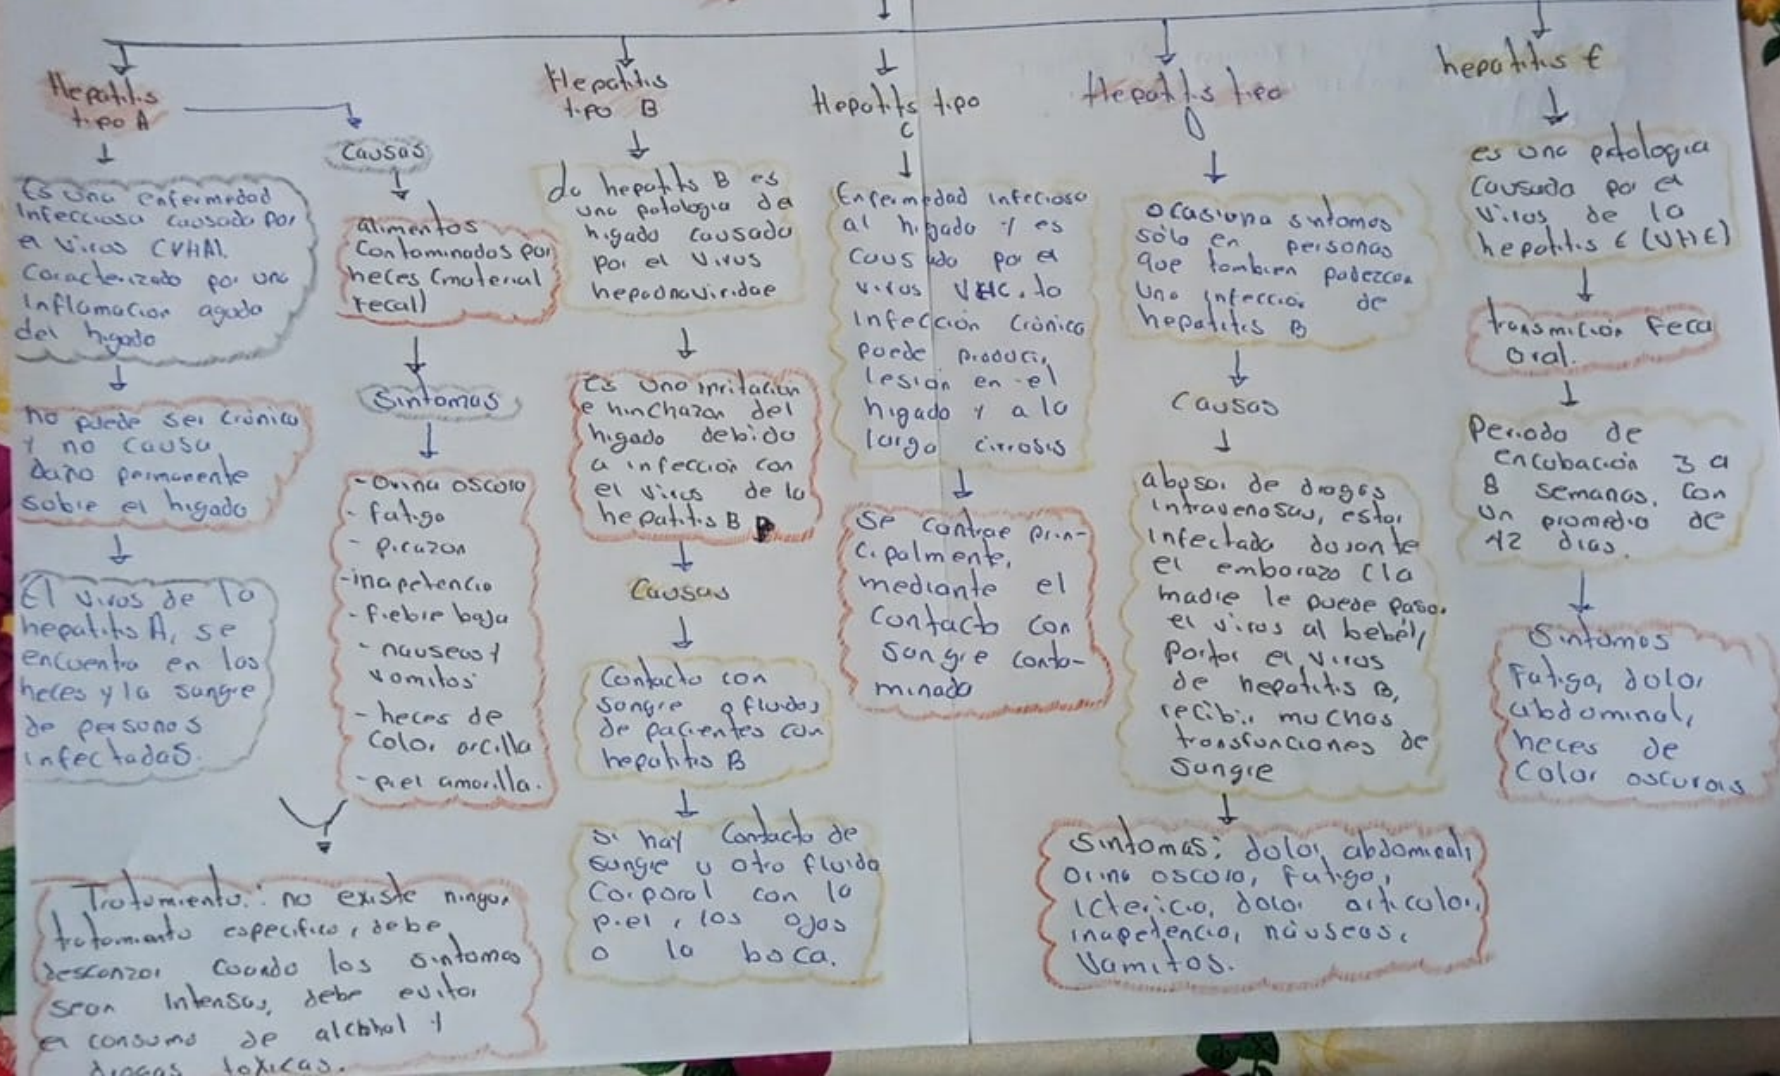 Hepatitis
tipo A
Es una enfermedad
Infecciosa causada por
el virus (VHA).
Caracterizado por una
Inflamacion aguda
del higado
no puede ser Crónica
y no causa
Daño permanente
sobre el higado
El virus de la
hepatitis A, se
encuentra en las
heces y la sangre
de personas
infectadas.
Causas
alimentos
Contaminados por
heces (material
fecal)
Sintomas
- Orina oscoro
- fatiga
- picazon
- inapetencia
- fiebre baja
- nauseas y
vomitos
- heces de
color arcilla
- piel amarilla.
Tratamiento: no existe ningun
tratamiento especifico, debe
descanzar cuando los sintomas
sean Intensas, debe evitar
el consumo de alcohol y
drogas toxicas.
Hepatitis
tipo B
La hepatits B es
una patologia del
higado causado
por el virus
hepadnaviridae
Es una irritacion
e hinchazon del
higado debido
a infección con
el virus de la
hepatitis B
Causas
Contacto con
Sangre o fluidos
de pacientes con
hepatitis B
Si hay Contacto de
Sangre u otro fluido
Corporal con la
piel, los ojos
o la boca.
Hepatits tipo
C
Enfermedad infeciosa
al higado y es
Causado por el
virus VHC. la
Infección Crónica
puede producir
lesión en el
higado y a la
largo cirrosis
Se contrae prin-
cipalmente,
mediante el
Contacto con
Sangre conta-
minada
Hepatits tipo
D
Ocasiona sintomas
sólo en personas
que tambien padezcan
Una infección de
hepatitis B
Causas
abusar de drogas
intravenosas, estar
infectada durante
el embarazo (la
madre le puede pasar
el virus al bebé),
Portar el virus
de hepatitis B,
recibir muchas
transfunciones de
Sangre
Sintomas: dolor abdominal,
Orina oscoro, fatiga,
Ictericia, dolor articular,
inapetencia, náuseas,
Vamitos.
hepatitis E
es una patologia
Causada por el
Virus de la
hepatitis E (VHE)
transmición feca
oral.
Periodo de
encubación 3 a
8 semanas. Con
un promedio de
42 dias.
Sintomas
Fatiga, dolor
abdominal,
heces de
Color oscuras